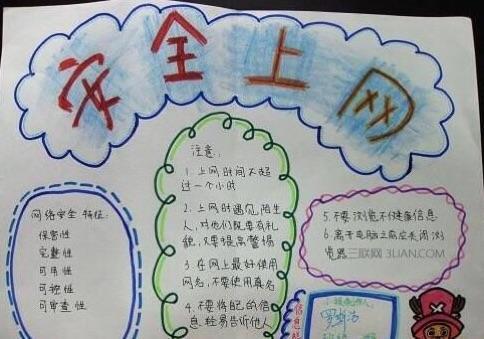 安全上网
网络安全 特征:
保密性
完整性
可用性
可控性
可审查性
注意:
1. 上网时间不超
过一个小时
2. 上网时遇见陌生
人,对他们既要有礼
貌,又要提高警惕
3. 在网上最好使用
网名,不要使用真名
4. 不要将自己的信
息轻易告诉他人
5. 不要浏览不健康信息
6. 离开电脑之前应关闭浏
览器
三联网 3LIAN.COM